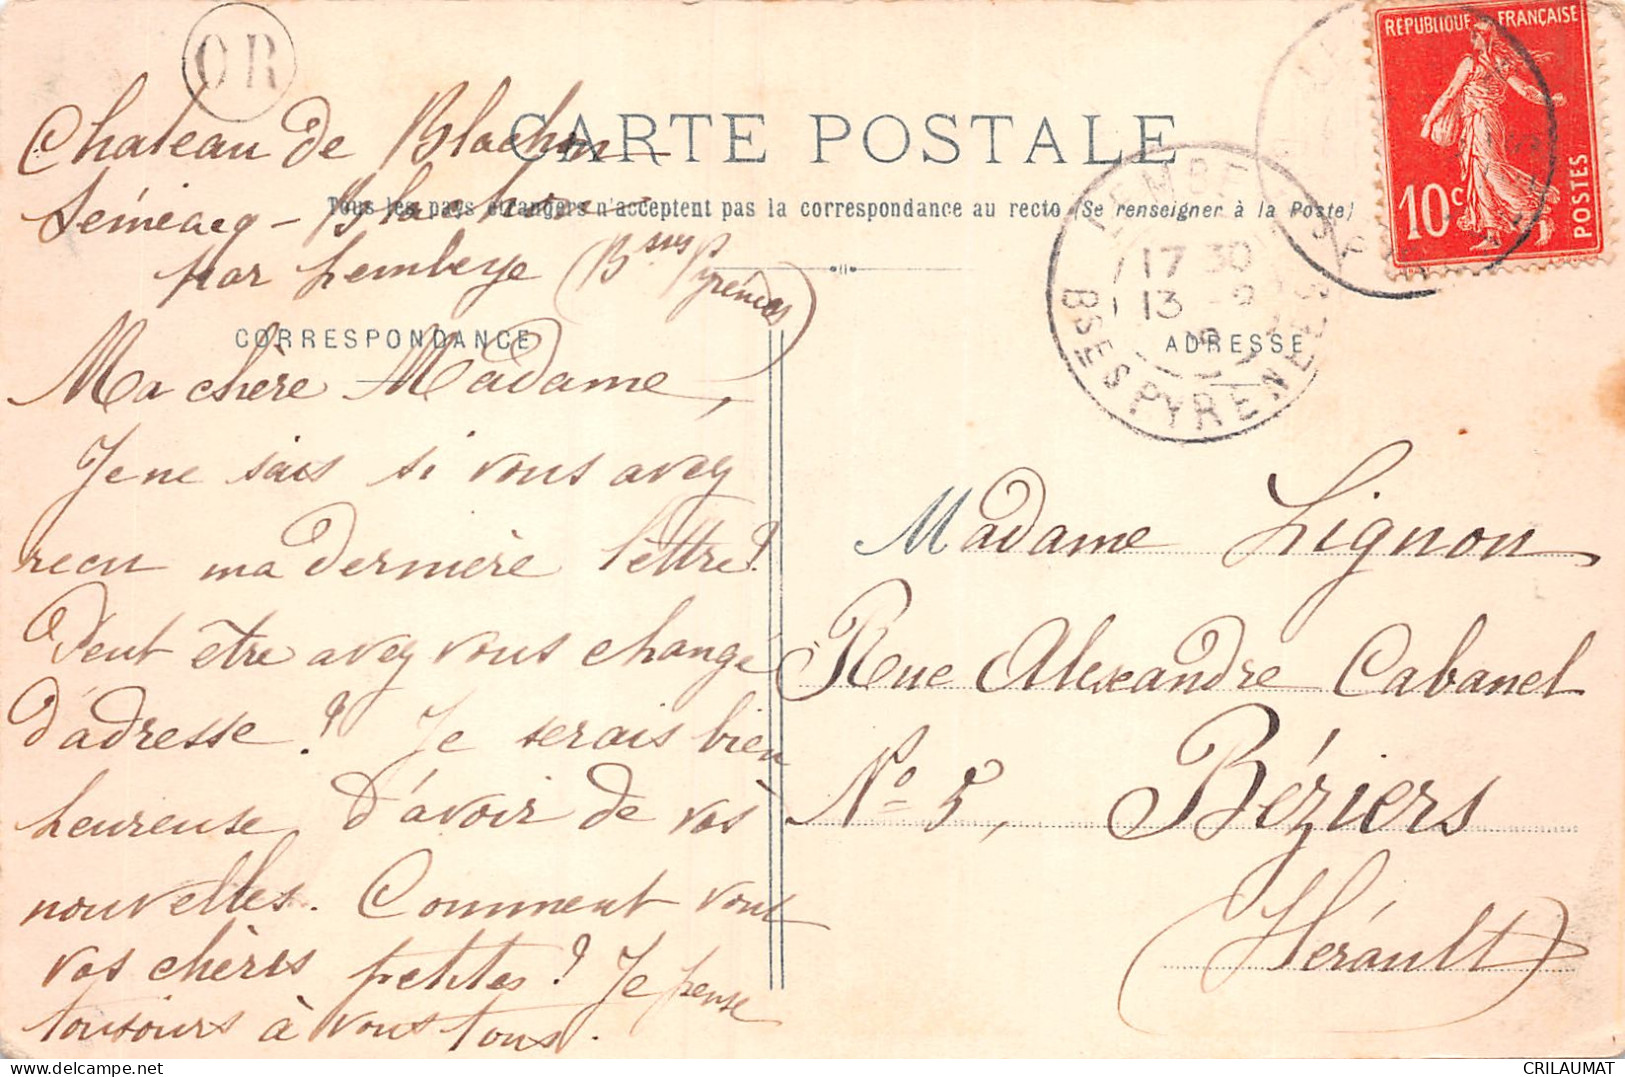 OR
RÉPUBLIQUE FRANÇAISE
10c
POSTES
CARTE POSTALE
Tous les pays étrangers n'acceptent pas la correspondance au recto (Se renseigner à la Poste)
CORRESPONDANCE
ADRESSE
LEMBEYE
17 30
13 -9
BSES PYRÉNÉES
Chateau de Blachon
Séméacq - Blachon
par Lembeye (Bses Pyrénées)
Ma chère Madame,
Je ne sais si vous avez
recu ma dernière lettre?
Peut être avez vous changé
d'adresse? Je serais bien
heureuse d'avoir de vos
nouvelles. Comment vont
vos chères petites? Je pense
toujours à vous tous.
Madame Lignon
Rue Alexandre Cabanel
No 5, Béziers
(Hérault)
CRILAUMAT